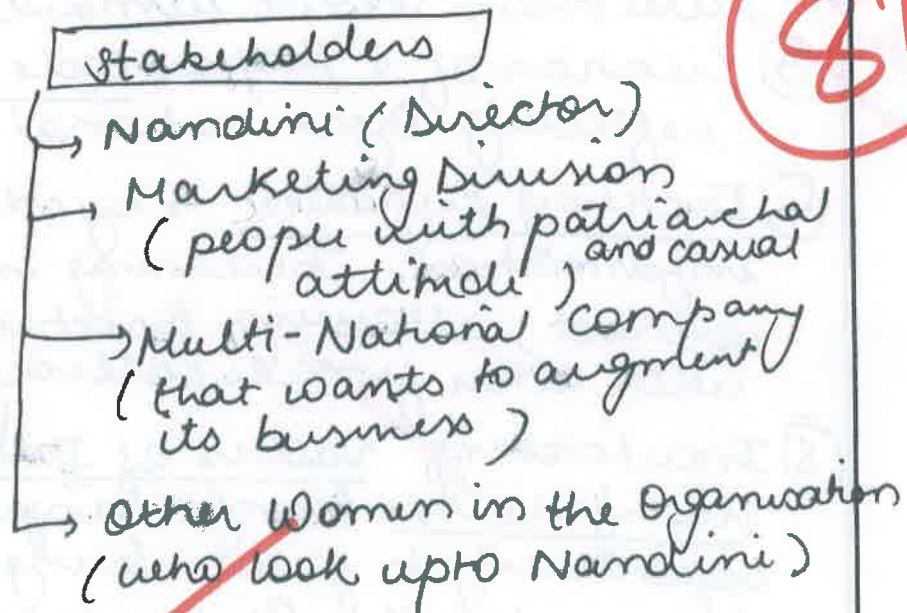 Stakeholders
8
Nandini (Director)
Marketing Division
(people with patriarchal
and casual
attitude)
Multi-National company
(that wants to augment
its business)
Other Women in the Organisation
(who look upto Nandini)